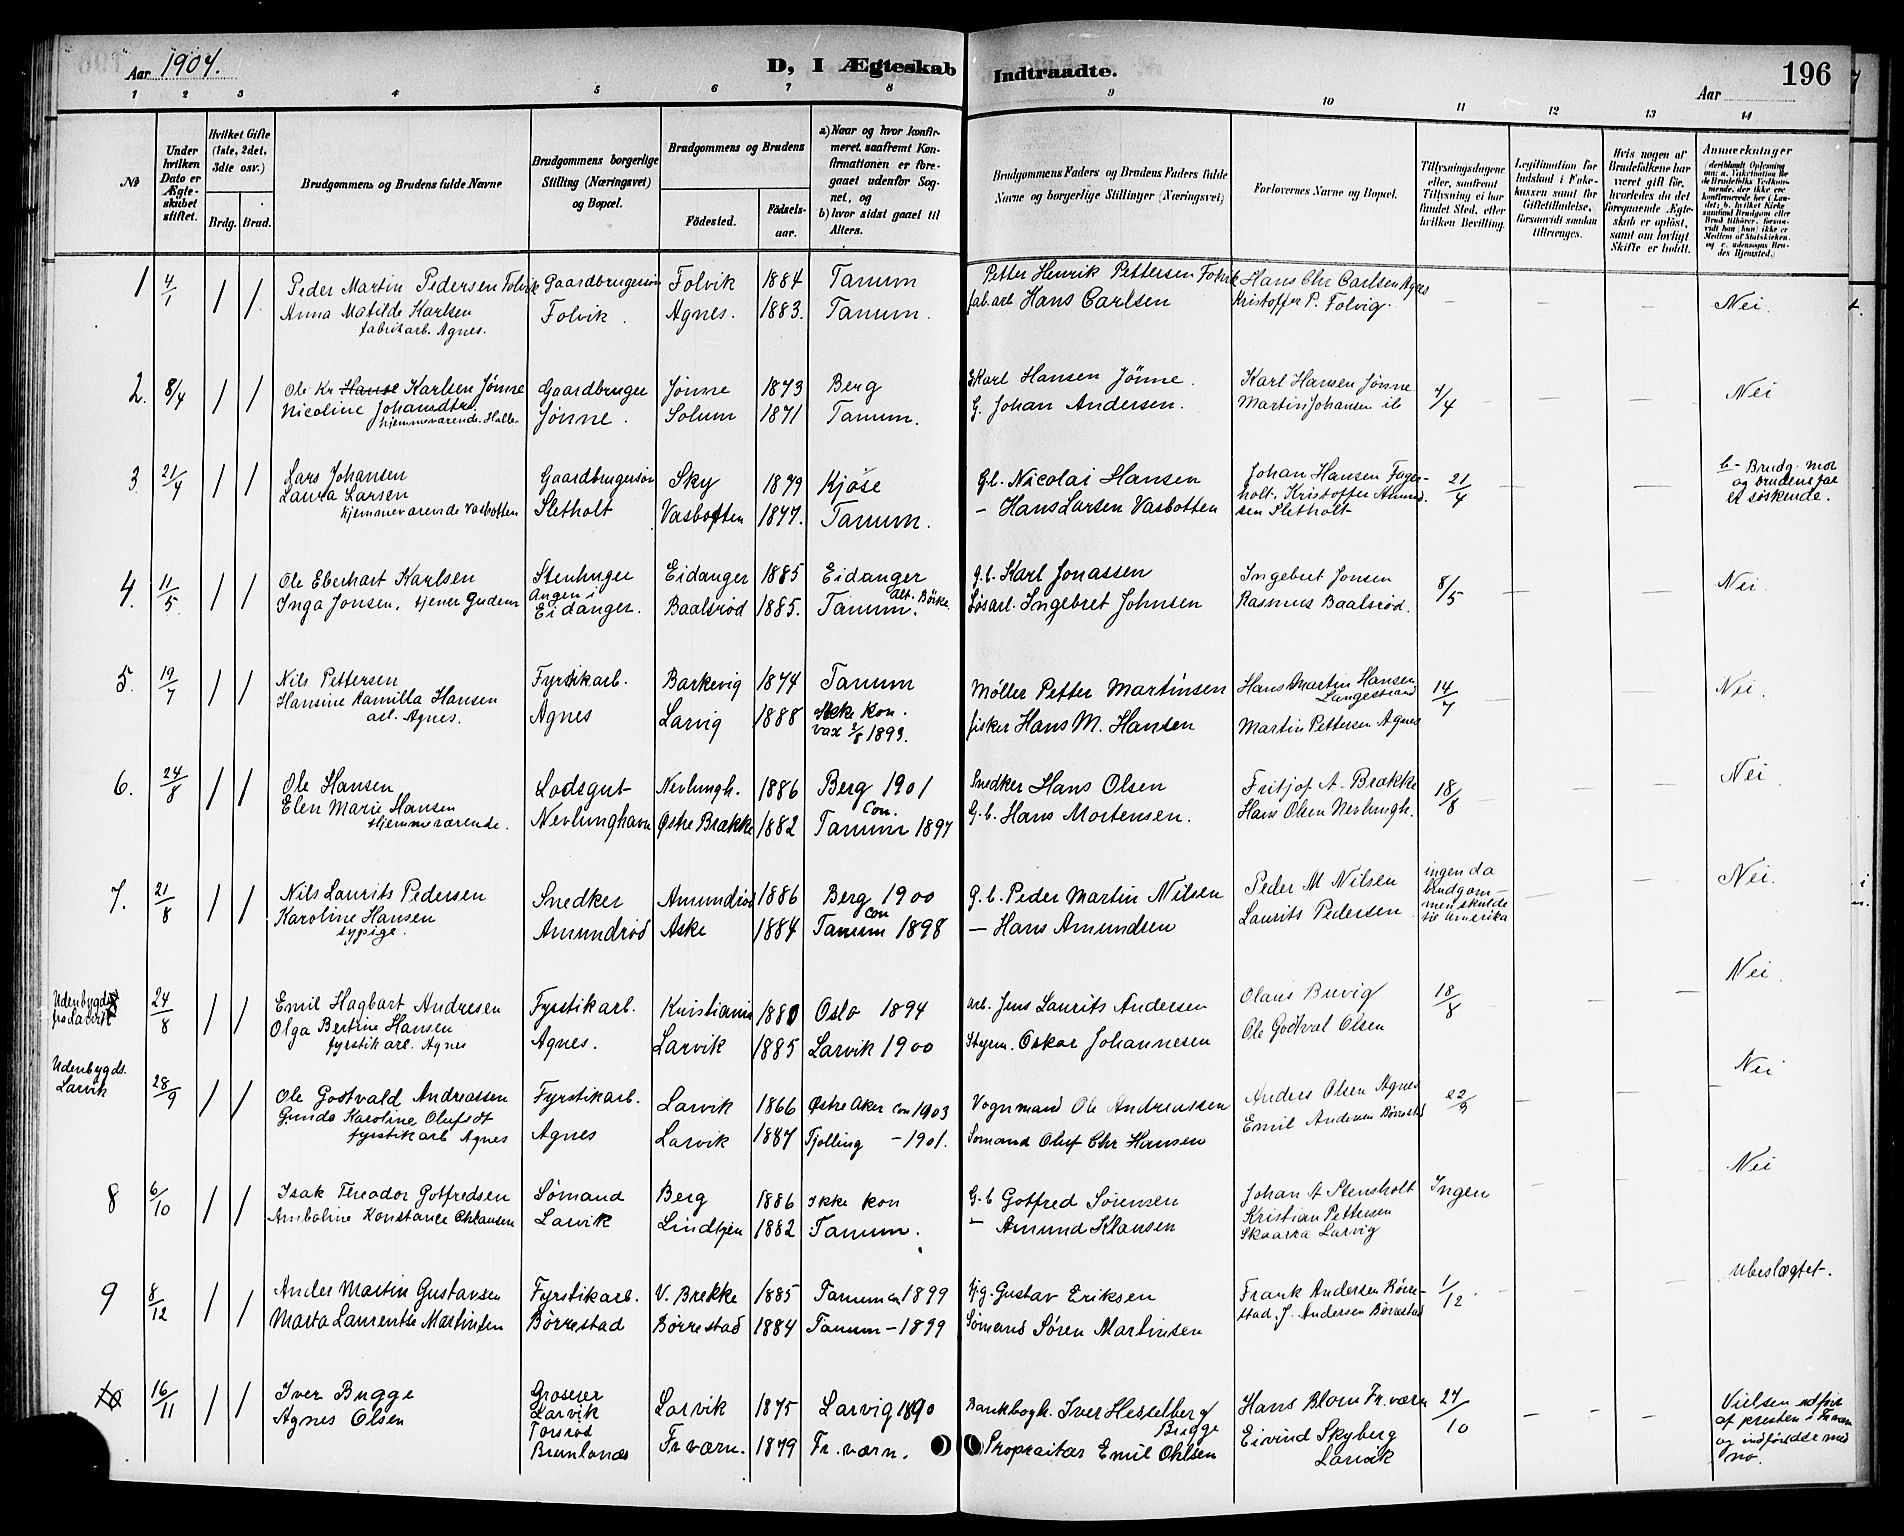 Aar 1907.
D, I Ægteskab Indtraadte.
Aar
196
1 2 3 4 5 6 7 8 9 10 11 12 13 14
No
Under hvilken Dato er Ægteskabet stiftet.
Hvilket Gifte (1ste, 2det, 3die osv.)
Brdg. Brud.
Brudgommens og Brudens fulde Navne
Brudgommens borgerlige Stilling (Næringsvei) og Bopæl.
Brudgommens og Brudens
Fødested. Fødselsaar.
a) Naar og hvor konfirmeret, saafremt Konfirmationen er foregaaet udenfor Sognet, og
b) hvor sidst gaaet til Alters.
Brudgommens Faders og Brudens Faders fulde Navne og borgerlige Stillinger (Næringsvei)
Forlovernes Navne og Bopæl.
Tillysningsdagene eller, saafremt Tillysning ei har fundet Sted, efter hvilken Bevilling.
Legitimation for Indskud i Enkekassen samt for Giftetilladelse, forsaavidt saadan tiltrænges.
Hvis nogen af Brudefolkene har været gift før, hvorledes da det foregaaende Ægteskab er opløst, samt om lovligt Skifte er holdt.
Anmærkninger
1 4/1 1 1 Peder Martin Pedersen Folvik Gaardbrugersøn Folvik 1884 Tanum Petter Henrik Pettersen Folvik Hans Chr Carlsen Agnes
Anna Matilde Karlsen Folvik. Agnes. 1883. Tanum. fab.arb. Hans Carlsen Kristoffer P. Folvig. — — — Nei.
fabrikarb. Agnes.
2. 8/4 1 1 Ole Kr Hanse Karlsen Jønne Gaardbruger Jønne 1873 Berg Karl Hansen Jønne. Karl Hansen Jønne 7/4 — — — Nei
Nicoline Johansdtr. Jønne. Solum 1871 Tanum. G. Johan Andersen. Martin Johansen ib
hjemmeværende. Halle
3. 21/4 1 1 Lars Johansen Gaardbrugersøn Sky 1879 Kjøse G.b. Nicolai Hansen Johan Hansen Fagerholt. 21/4 — — b - Brudg. mor
Laura Larsen Sletholt Vasbotten 1877. Tanum. — Hans Larsen Vasbotten Kristoffer Amundsen Sletholt og brudens far
hjemmeværende Vasbotten er søskende.
4. 11/5 1 1 Ole Eberhart Karlsen Stenhuger Eidanger 1885 Eidanger G.b. Karl Jonassen Ingebret Jonsen 8/5 — — Nei.
Inga Jonsen, tjener Gudem Angen i Eidanger. Baalsrød 1885. Tanum. alt. Børke Løsarb. Ingebret Johnsen Rasmus Baalsrød.
5. 19/7 1 1 Nils Pettersen Fyrstikarb. Barkevig 1874 Tanum Møller Petter Martinsen Hans Martin Hansen Langestrand 14/7 — — — Nei.
Hansine Kamilla Hansen Agnes Larvig 1888 Ikke kon. fisker Hans M. Hansen Martin Pettersen Agnes
arb. Agnes. vax 2/8 1893.
6. 24/8 1 1 Ole Hansen Lodsgut Nevlungh. 1886 Berg 1901 Snedker Hans Olsen Fritjof A. Brække 18/8 — — Nei
Elen Marie Hansen Nevlunghavn Østre Brække 1882 Con. Tanum 1897 G.b. Hans Mortensen. Hans Olsen Nevlungh.
Hjemmeværende.
7. 21/8 1 1 Nils Laurits Pedersen Snedker Amundrød 1886 Berg 1900 G.b. Peder Martin Nilsen Peder M Nilsen ingen da brudgommen skulde til Amerika — — Nei.
Karoline Hansen Amundrød Aske 1884 con Tanum 1898 — Hans Amundsen Laurits Pedersen
sypige.
Udenbygds fra Larvik 24/8 1 1 Emil Hagbart Andresen Fyrstikarb. Kristiania 1880 Oslo 1894 arb. Jens Laurits Andersen Olaus Buvig 18/8 — — — Nei.
Olga Bertine Hansen Agnes. Larvik 1885 Larvik 1900 Styrm. Oskar Johannesen Ole Godtval Olsen
fyrstikarb. Agnes
Udenbygds. Larvik 28/9 1 1 Ole Gostvald Andreassen Fyrstikarb. Larvik 1866 Østre Aker con 1903 Vognmand Ole Andreassen Anders Olsen Agnes 22/9 — — — Nei
Gunda Karoline Olufsdt Agnes Larvik 1887 Tjølling — 1901. Sømand Oluf Chr Hansen Emil Andersen Børrestad
fyrstikarb Agnes
8 6/10 1 1 Isak Theodor Gotfredsen Sømand Berg 1886 Ikke kon G.b Gotfred Sørensen Johan A Stensholt Ingen — — Nei
Amboline Konstance Larvik Lindhjem 1882 Tanum. — Amund Klausen Kristian Pettersen
Skaarra Larvig
9 8/12 1 1 Ander Martin Gustavsen Fyrstikarb. V. Brekke 1885 Tanum con 1899 Gustav Eriksen Frank Andersen Børrestad. 1/12 — — — ubeslægtet.
Marta Laurentse Martinsen Børrestad Børrestad 1884 Tanum — 1899 Sømand Søren Martinsen J. Andersen Børrestad
10 16/11 1 1 Iver Bugge Groserer Larvik Larvik 1875 Larvig 1890 Bankbogh. Iver Hesselberg Bugge Hans Blom Fr.værn 27/10 — — — Vielsen udført
Agnes Olsen Torsrød Brunlanæs Fr.værn. 1879 Fr.værn. Propraitær Emil Ohlsen Eivind Skyberg Larvik af presten i Fr.værn
og indføres med
no.